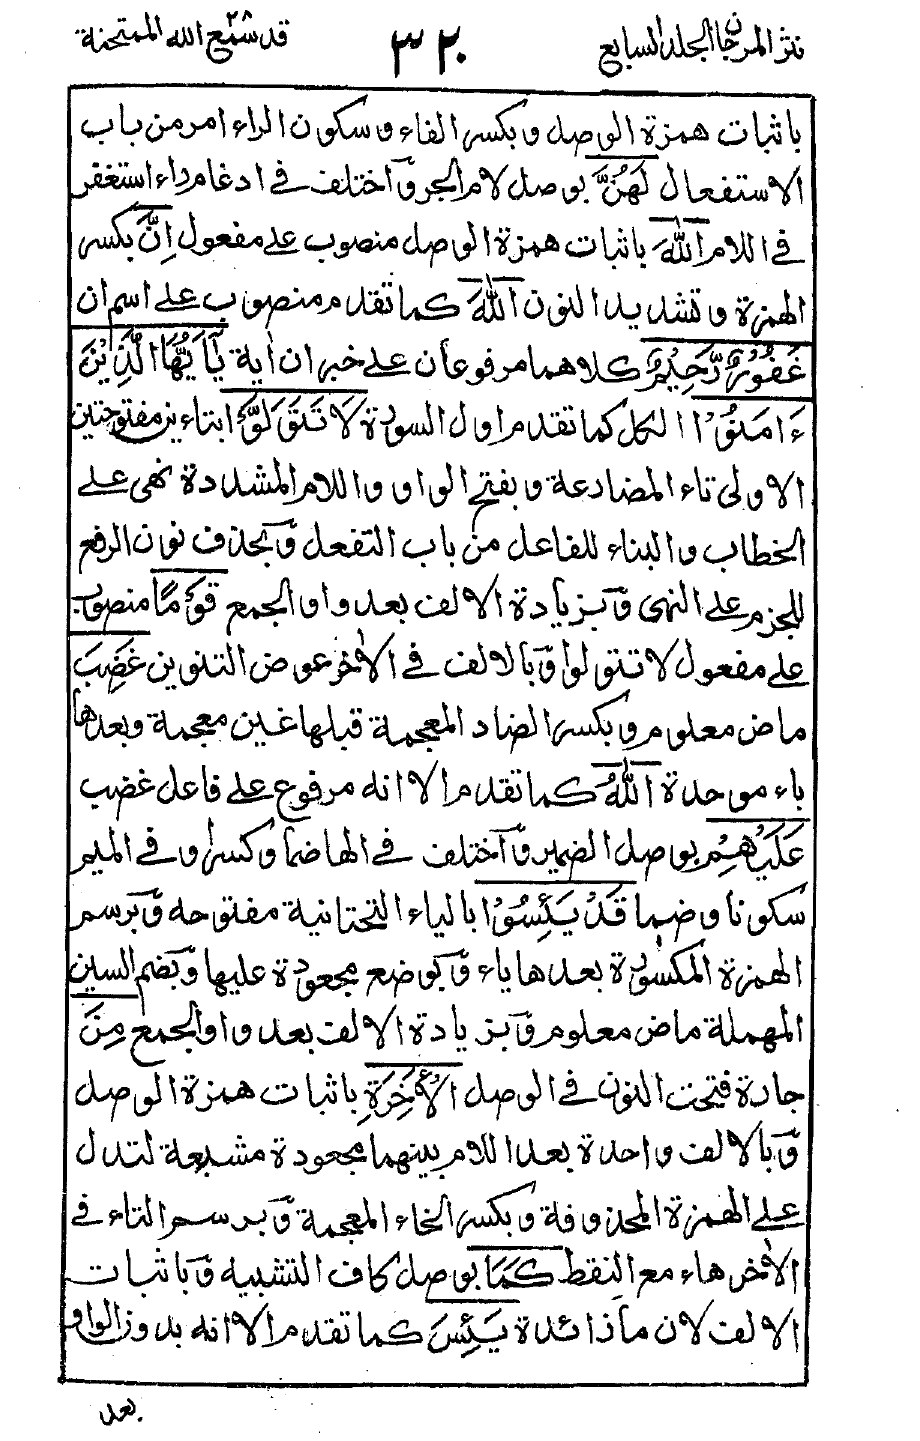 نثر المرجان الجلد السابع ٣٢٠ قد سمع الله ٢٨ الممتحنة
باثبات همزة الوصل و بكسر الفاء و سكون الراء امر من باب
الاستفعال لَهُنَّ بوصل لام الجر و اختلف في ادغام راء استغفر
في اللام اللهَ باثبات همزة الوصل منصوب على مفعول اِنَّ بكسر
الهمزة و تشديد النون اللهَ كما تقدم منصوب على اسم ان
غَفُوْرٌ رَّحِيْمٌ كلاهما مرفوعان على خبر ان اية يٰٓاَيُّهَا الَّذِيْنَ
ءَامَنُوْا الكل كما تقدم اول السورة لَا تَتَوَلَّوْا بتاءين مفتوحتين
الاولى تاء المضارعة و بفتح الواو و اللام المشددة نهى على
الخطاب و البناء للفاعل من باب التفعل و بحذف نون الرفع
للجزم على النهى و بزيادة الالف بعد واو الجمع قَوْمًا منصوب
على مفعول لا تتولوا و بالالف في الاٰخر عوض التنوين غَضِبَ
ماض معلوم و بكسر الضاد المعجمة قبلها غين معجمة و بعدها
باء موحدة اللهُ كما تقدم الا انه مرفوع على فاعل غضب
عَلَيْهِمْ بوصل الضمير و اختلف في الهاء ضما و كسرا و في الميم
سكونا و ضما قَدْ يَئِسُوْا بالياء التحتانية مفتوحة و برسم
الهمزة المكسورة بعدها ياء و بوضع مجعودة عليها و بضم السين
المهملة ماض معلوم و بزيادة الالف بعد واو الجمع مِنَ
جارة فتحت النون في الوصل الْاٰخِرَةِ باثبات همزة الوصل
و بالالف واحدة بعد اللام بينهما مجعودة مشبعة لتدل
على الهمزة المحذوفة و بكسر الخاء المعجمة و برسم التاء في
الاٰخر هاء مع النقط كَمَا بوصل كاف التشبيه و باثبات
الالف لان ما زائدة يَئِسَ كما تقدم الا انه بدون الواو
بعد